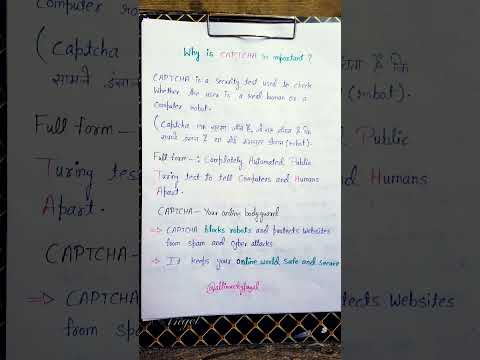 Why is CAPTCHA so important?
CAPTCHA is a security test used to check
Whether the user is a real human or a
Computer robot.
(Captcha एक सुरक्षा जाँच है, जो यह
सामने इंसान है या कोई कंप्यूटर (robot).
Full form - : Completely Automated Public
Turing test to tell Computers and Humans
Apart.
CAPTCHA - Your online bodyguard
⇒ CAPTCHA blocks robots and protects Websites
from spam and cyber attacks
⇒ It keeps your online world safe and secure